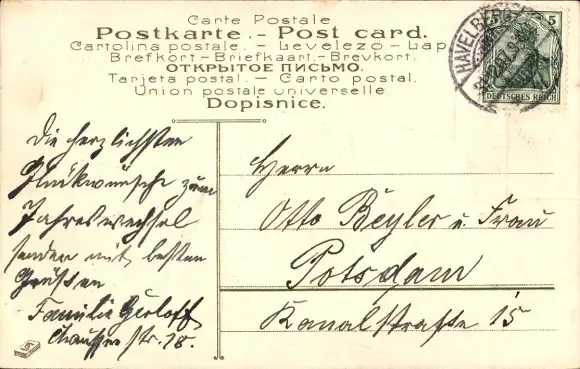 Carte Postale
Postkarte. - Post card.
Cartolina postale. - Levelezo - Lap
Brefkort - Briefkaart. - Brevkort.
ОТКРЫТОЕ ПИСЬМО.
Tarjeta postal. - Carto postal.
Union postale universelle
Dopisnice.
HAVELBERG
5
DEUTSCHES REICH
Die herzlichsten
Glückwünsche zum
Jahreswechsel
senden mit besten
Grüßen
Familie Gerloff
Chaussee str. 78.
Herrn
Otto Beyler u. Frau
Potsdam
Kanalstraße 15